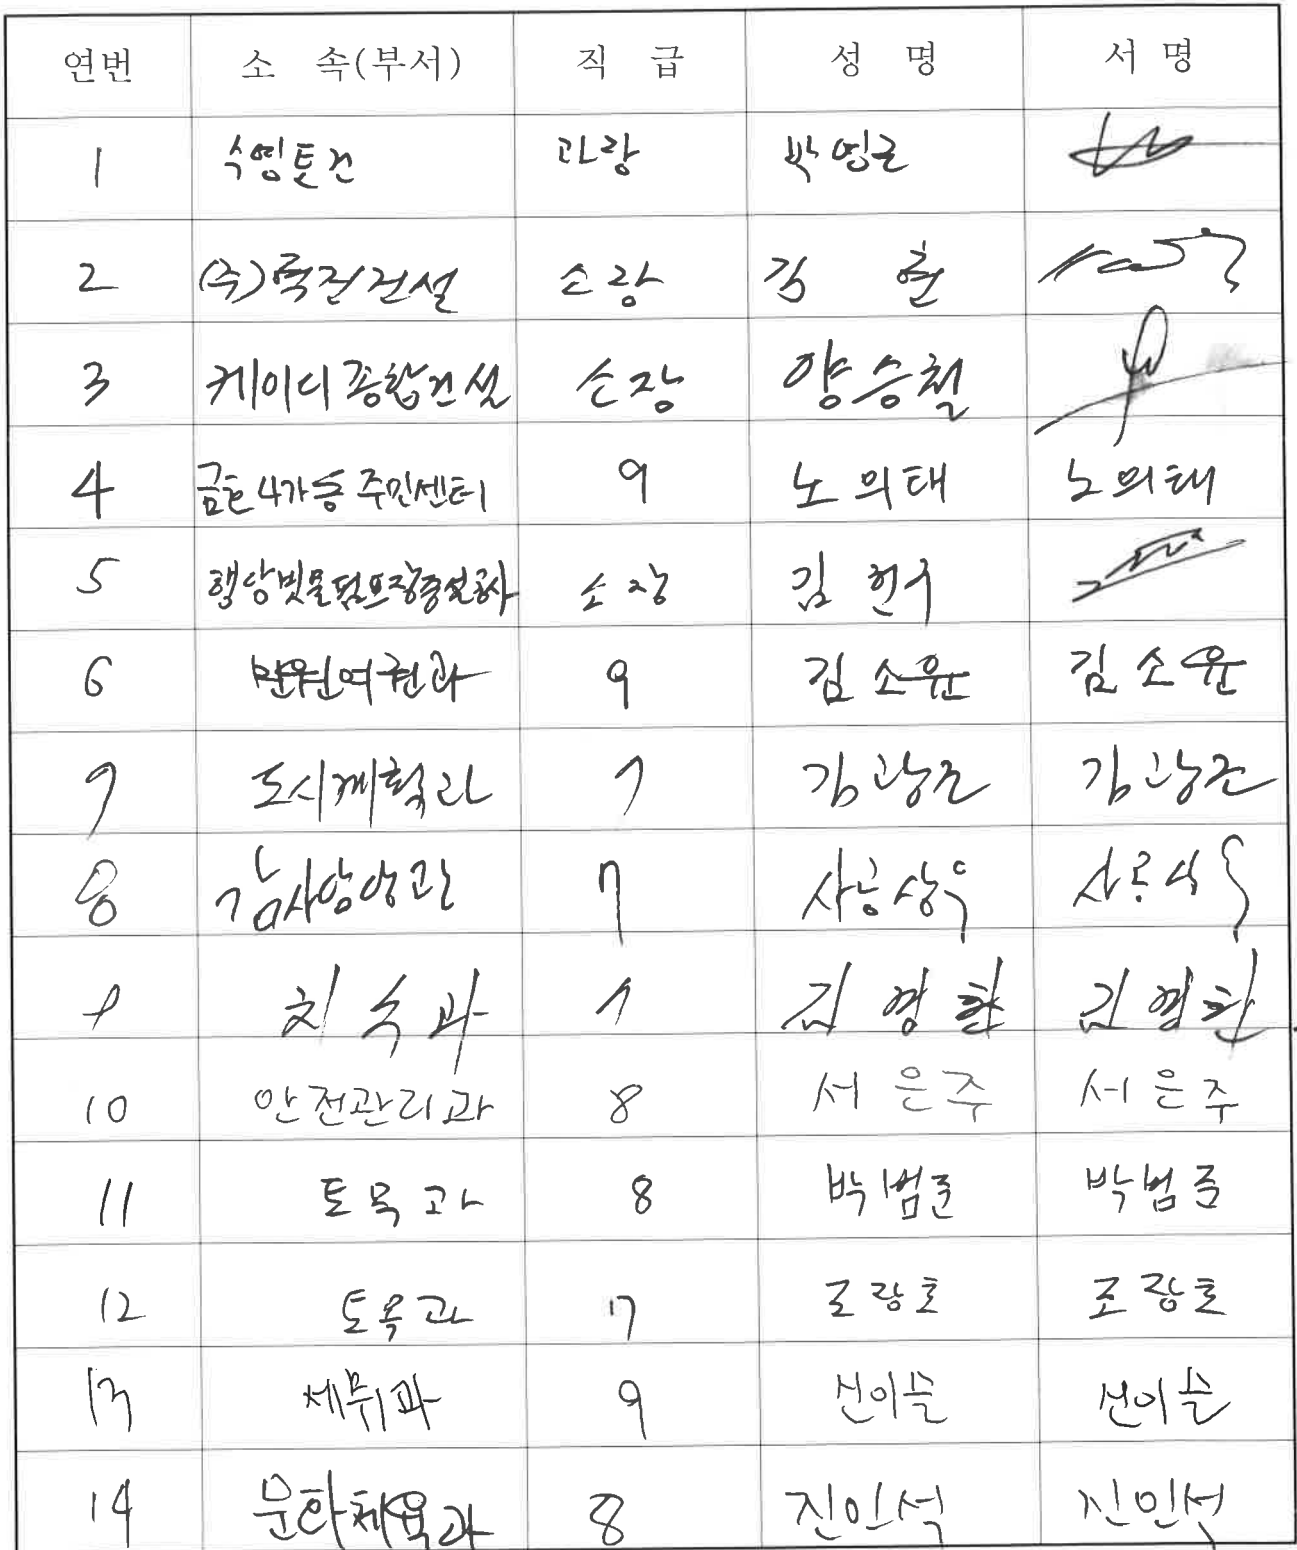 연번 소 속(부서) 직 급 성 명 서 명
1 수영토건 과장 박영근
2 (주)륙진건설 소장 김 훈
3 케이디종합건설 소장 양승철
4 금호4가동 주민센터 9 노의태 노의태
5 행당빗물펌프장증설공사 소장 김현수
6 민원여권과 9 김소윤 김소윤
7 도시계획과 7 김광준 김광준
8 감사담당관 7 사공상욱
9 치수과 7 김영환 김영환
10 안전관리과 8 서은주 서은주
11 토목과 8 박범준 박범준
12 토목과 7 조장호 조장호
13 세무1과 9 선이슬 선이슬
14 문화체육과 8 진인석 진인석